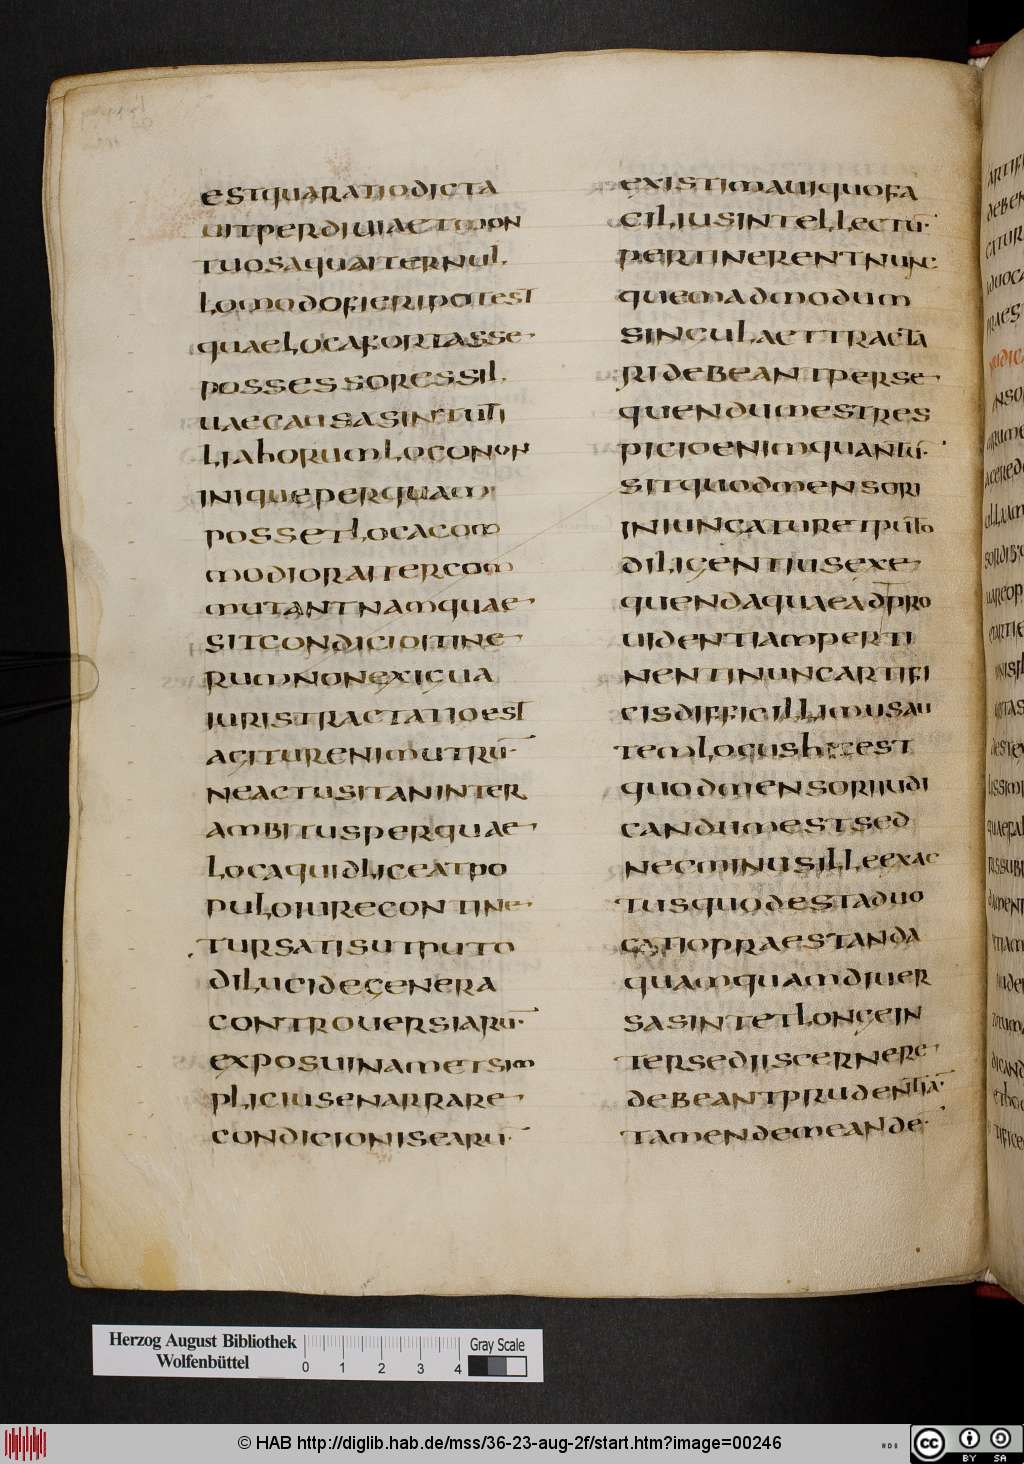 estquaratiodicta
uitperdiuiaetmon
tuosaquaiternul
lomodofieripotest
quaelocafortasse
possessoressil
uaecausasinetuti
liahorumloconon
iniqueperquam
possetlocacom
modioraitercom
mutantnamquae
sitcondicioitine
rumnonexigua
iuristractatioest
agiturenimutrū
neactusitaninter
ambitusperquae
locaquidliceatpo
puloiurecontine
tursatisutputo
dilucidegenera
controuersiarū
exposuinametsim
pliciusenarrare
condicionisearū
existimauiquofa
ciliusintellectū
pertinerentnunc
quemadmodum
singulaettracta
ridebeantperse
quendumestres
picioenimquantū
sitquodmensori
iniungaturetputo
diligentiusexe
quendaquaeadpro
uidentiamperti
nentinuncartifi
cisdifficillimusau
temlocushicest
quodmensoriiudi
candumestsed
necminusilleexac
tusquodestaduo
catiopraestanda
quamquamdiuer
sasintetlongein
tersediiscernere
debeantprudentiā
tamendemeande
Herzog August Bibliothek
Wolfenbüttel
0 1 2 3 4
Gray Scale
© HAB http://diglib.hab.de/mss/36-23-aug-2f/start.htm?image=00246
cc BY SA